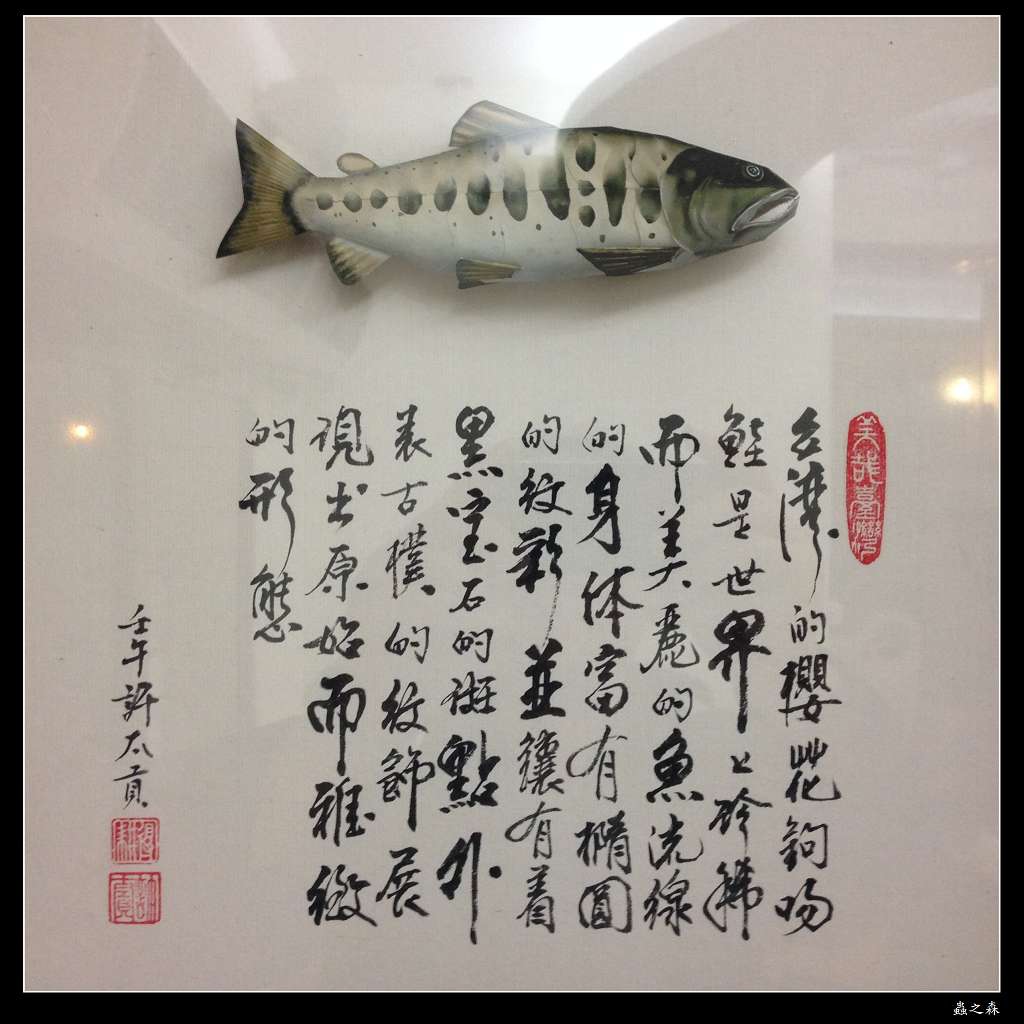 美哉臺灣
台灣的櫻花鉤吻
鮭是世界上珍稀
而美麗的魚流線
的身体富有橢圓
的紋彩並鑲有着
黑宝石的斑點外
表古樸的紋飾展
現出原始而雅緻
的形態
壬午許太貢
蟲之森